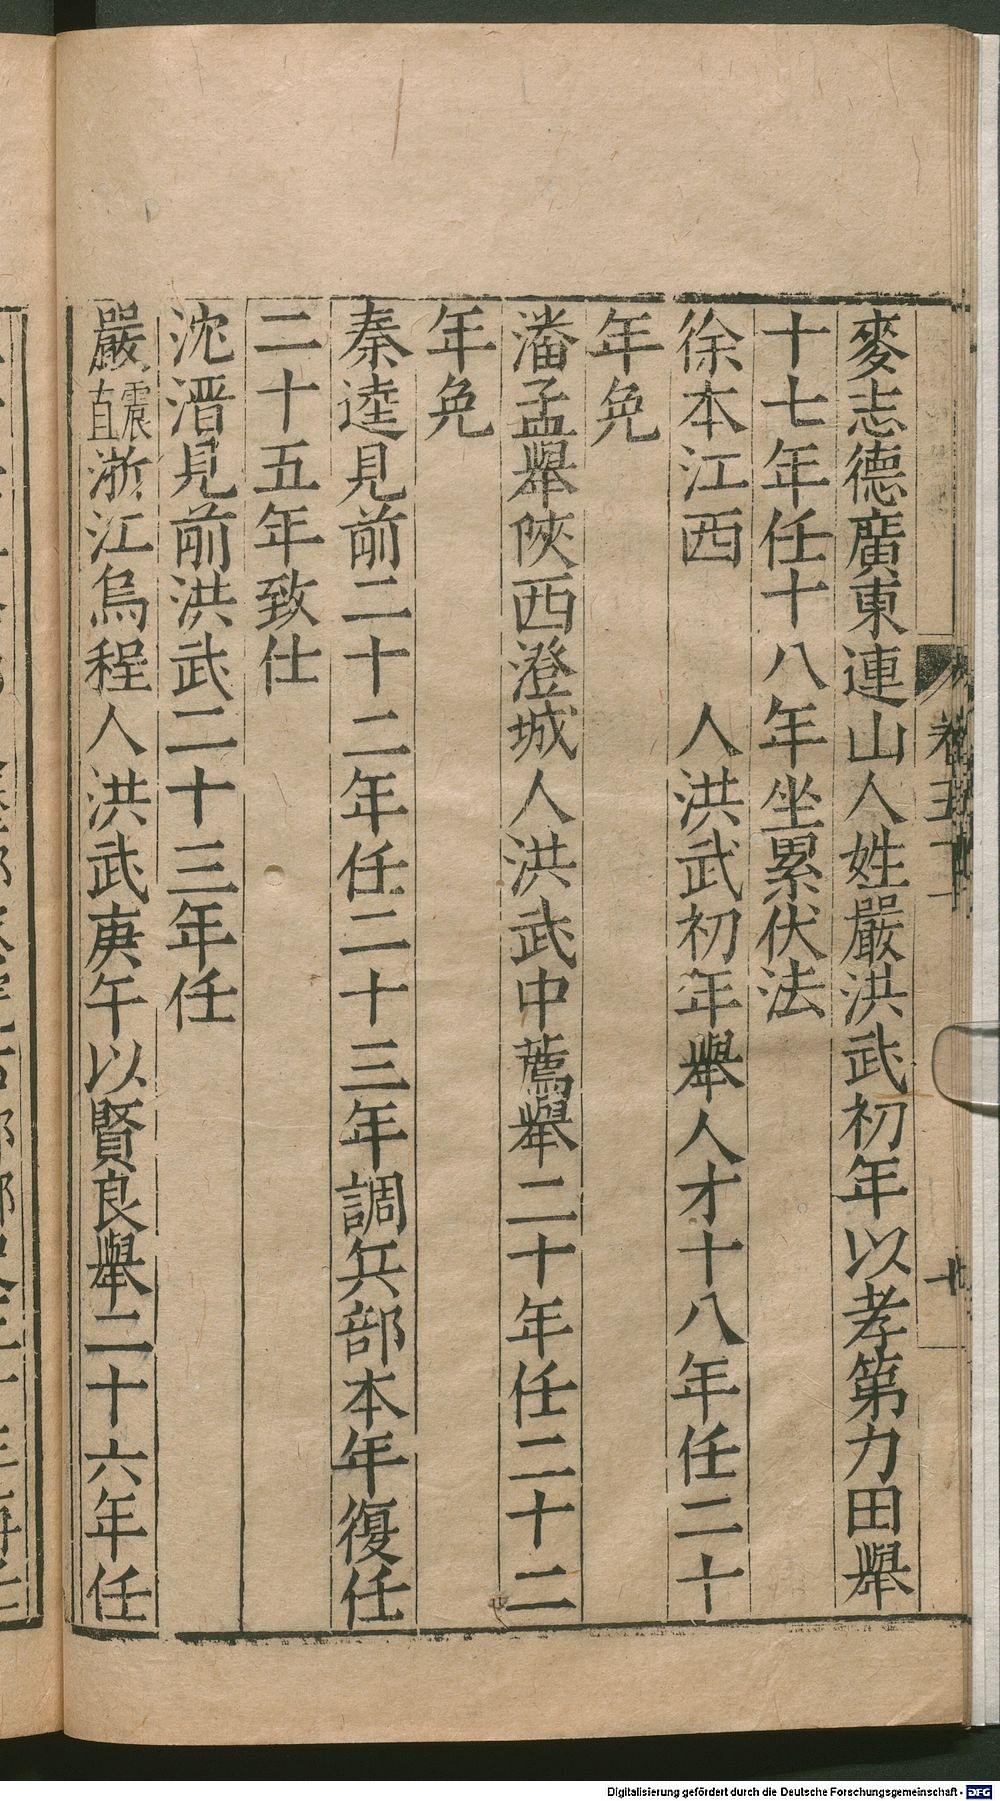 麥志德廣東連山人姓嚴洪武初年以孝第力田舉
十七年任十八年坐累伏法
徐本江西　　人洪武初年舉人才十八年任二十
年免
潘孟舉陝西澄城人洪武中薦舉二十年任二十二
年免
秦逵見前二十二年任二十三年調兵部本年復任
二十五年致仕
沈溍見前洪武二十三年任
嚴震直浙江烏程人洪武庚午以賢良舉二十六年任
Digitalisierung gefördert durch die Deutsche Forschungsgemeinschaft - DFG